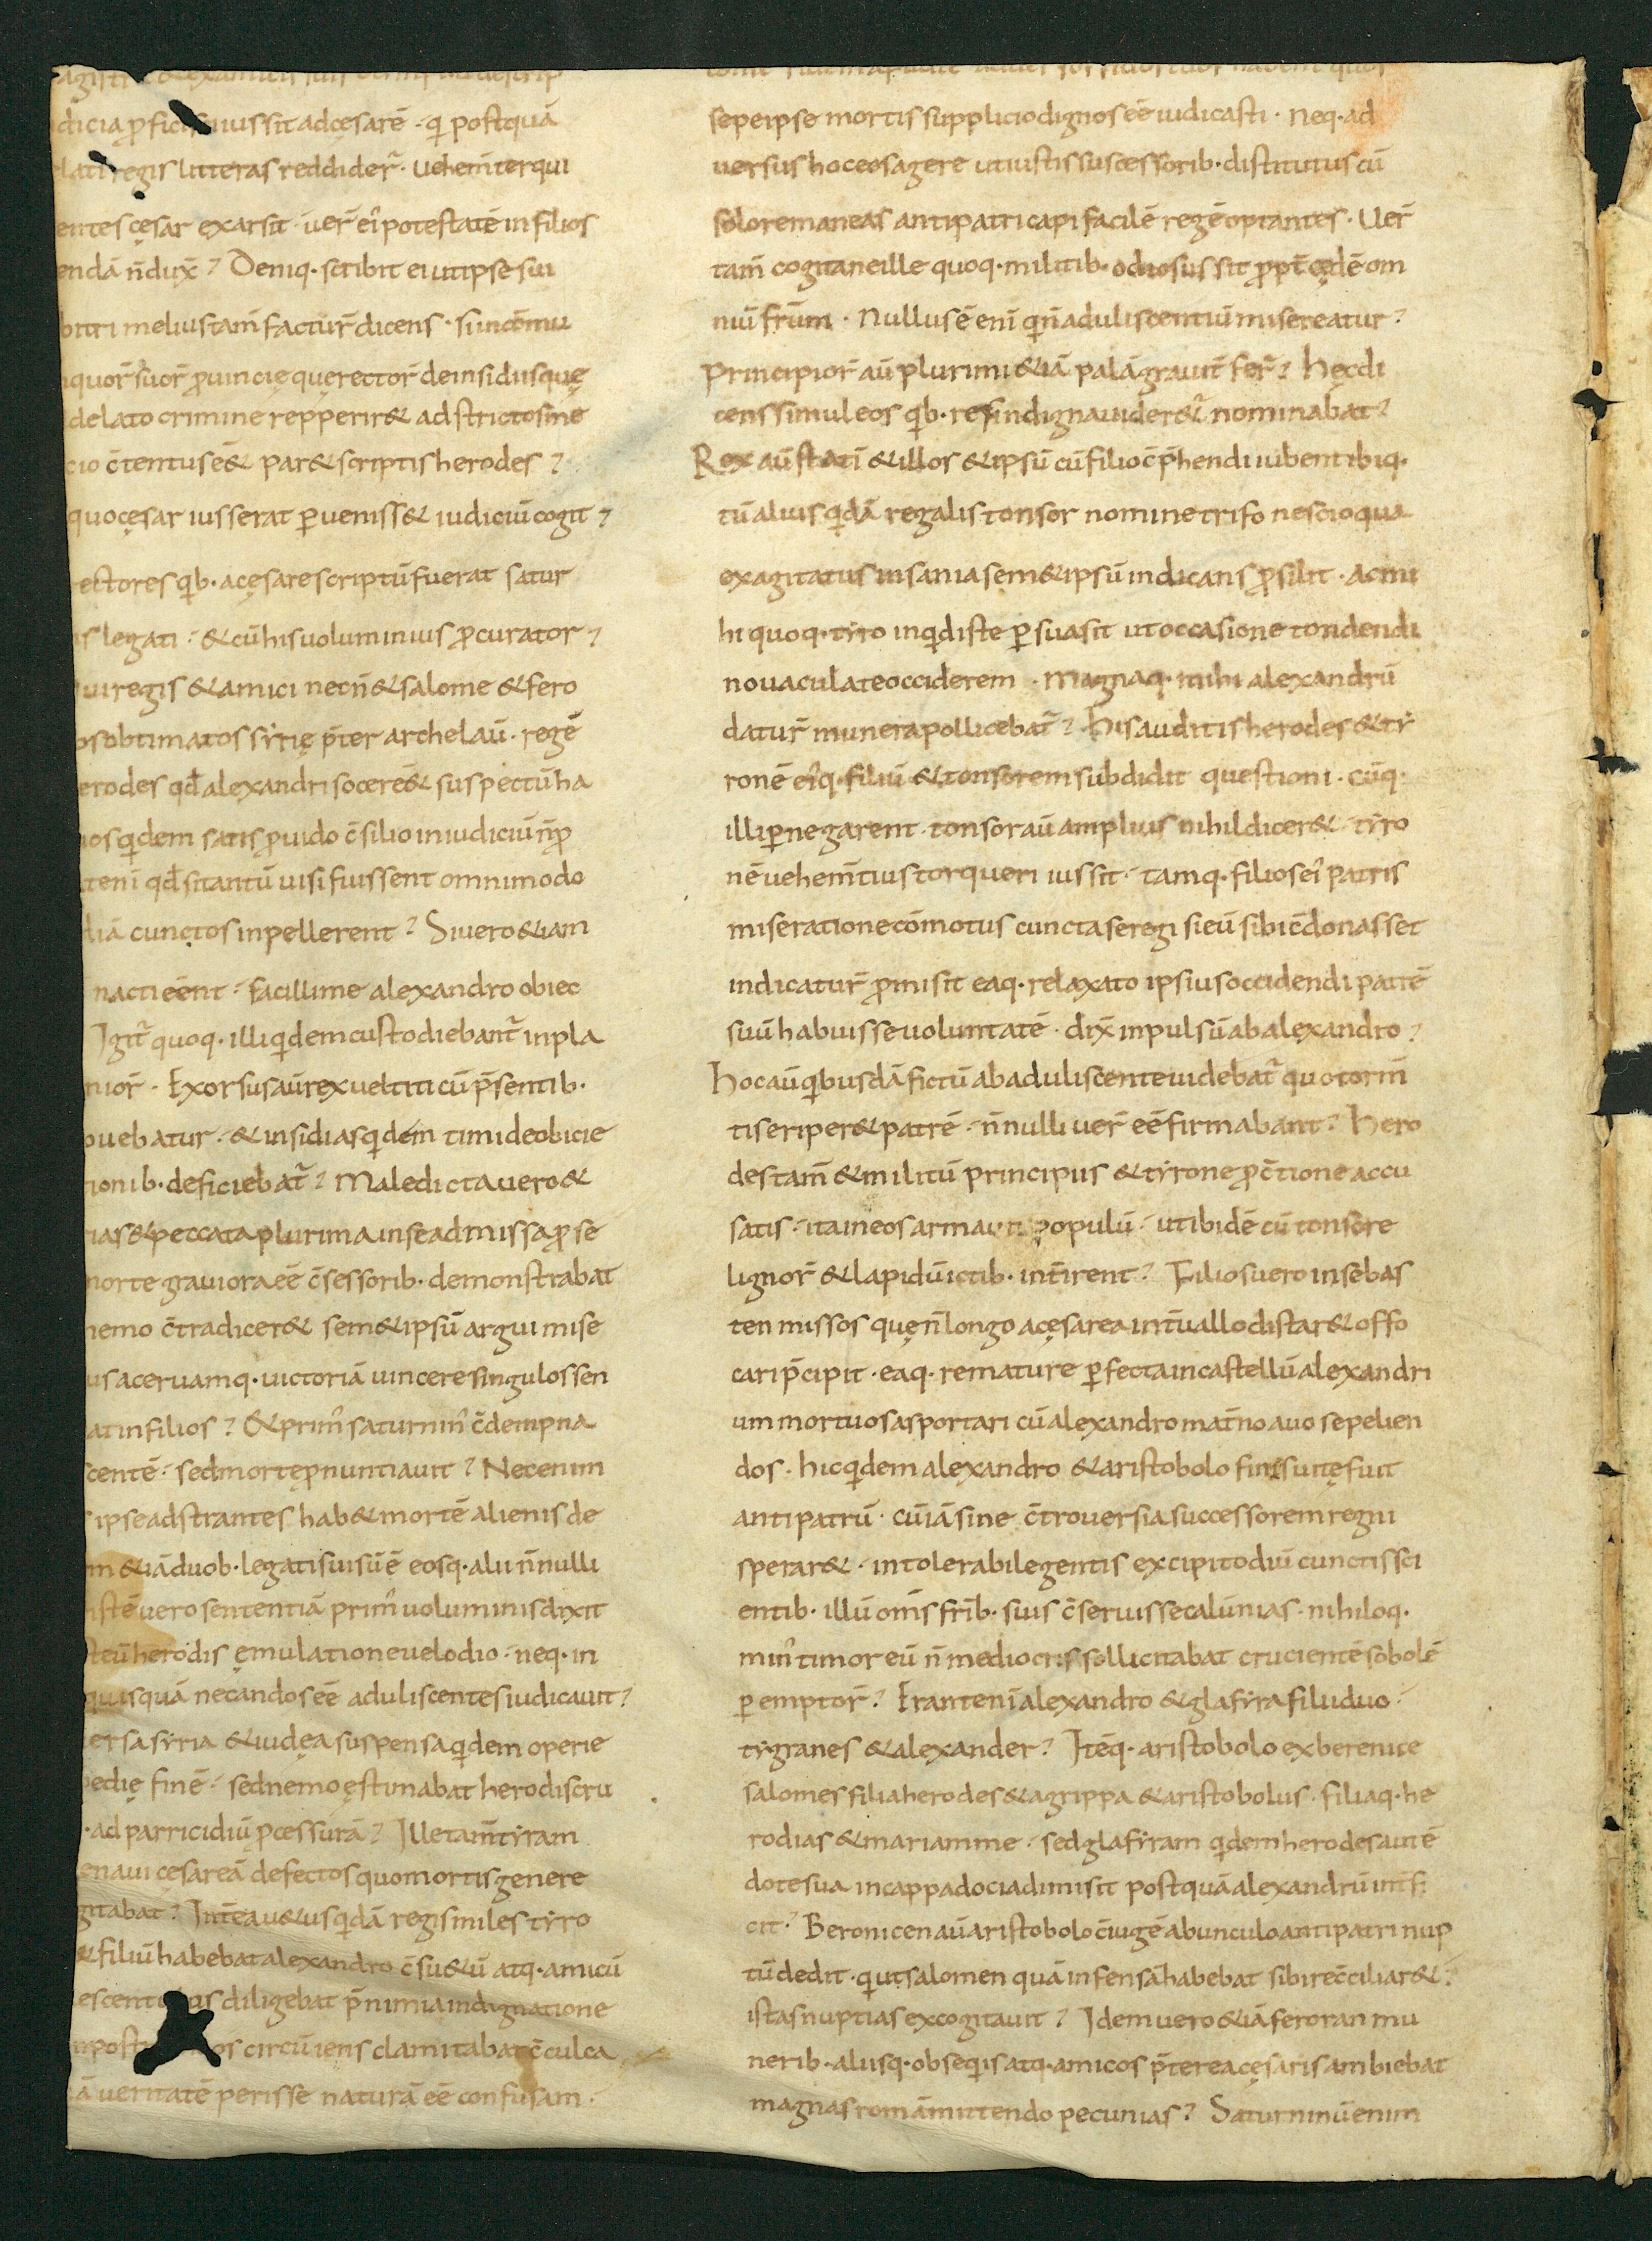 dicia ꝓfici iussit adcesarē · qi postquā
regis litteras reddider̄ · uehem̄ter qui
entes cęsar exarsit · uer̄ ei potestatē infilios
endā n̄dux̄? Deniq· scribit ei ut ipse sui
melius tam̄ factur̄ dicens · si incōmu
quor̄ suor̄ ꝓuincię quę rector̄ deinsidiis quę
delato crimine repperir& adstrictos ine
cio c̄tentus e& par& scriptis herodes?
quo cęsar iusserat ꝑueniss& iudiciū cogit?
ectores qib· acęsare scriptū fuerat satur
is legati · & cū his uoluminius ꝓcurator?
ui regis & amici necn̄ & salome & fero
os obtimatos syrię p̄ter archelaū · regē
erodes qd̄ alexandri socer e& suspectū ha
ios qidem satis ꝓuido c̄silio in iudiciū n̄ ꝓ
t eni qd̄ si tantū uisi fuissent omnimodo
diā cunctos inpellerent? Si uero &iam
nacti eēnt · facillime alexandro obiec
Igit̄ quoq· illi qidem custodiebant̄ inpla
nior̄ · Exorsus aū rex uelut icū p̄sentib·
ouebatur · & insidias qidem timide obicie
ionib· deficiebat̄? Maledicta uero &
rias & peccata plurima in se admissa ꝓ se
morte grauiora eē c̄sessorib· demonstrabat
nemo c̄tradicer& sem&ipsū argui mise
us aceruamq· uictoriā uincere singulos sen
at infilios? & prim̄ saturnin̄ c̄dempna
centē · sed mortē p̄nuntiauit? Nec enim
ipse adstrantes hab& mortē alienis de
m &iā duob· legati sui sū ē eosq· alii n̄nulli
istē uero sententiā prim̄ uoluminis dixit
eū herodis ęmulatione uel odio · neq· in
quisquā necandos eē aduliscentes iudicauit?
ersa syria & iudęa suspensa qidem operie
edię finē · sed nemo ęstimabat herodis cru
· ad parricidiū p̄cessurā? Ille tam̄ tyram
naui cęsareā defectos quo mortis genere
gitabat? Int̄ea u&us qidā regis miles tyro
& filiū habebat alexandro c̄su&ū atq· amicū
escent is diligebat p̄ nimia indignatione
post os circūiens clamitabat c̄culca
ā ueritatē perisse naturā eē confusam ·
sepe ipse mortis supplicio dignos eē iudicasti · Neq· ad
uersus hoc eos agere ut iustis suscessorib· distitutus cū
solo remaneas antipatri capi facilē regē optantes · Uer̄
tam̄ cogita ne ille quoq· militib· odiosus sit ꝓpt̄ cędē om
niū frūm · Nullus ē eni qi n̄ aduliscentiū misereatur?
Principior̄ aū plurimi &iā palā grauit̄ fer̄? Hęc di
cens simul eos qib· res indigna uider&̄ nominabat?
Rex aū stati & illos & ipsū cū filio c̄p̄hendi iubent ibiq·
tū alius qidā regalis tonsor nomine trifo nescio qua
exagitatus insania sem&ipsū indicans ꝓsilit · ac mi
hi quoq· tyro inqid iste ꝑsuasit ut occasione tondendi
nouacula te occiderem · Magnaq· mihi alexandrū
datur̄ munera pollicebat̄? His auditis herodes & ty
ronē eiq· filiū & tonsorem subdidit questioni · cūq·
illi ꝑnegarent · tonsor aū amplius nihil dicer& · tyro
nē uehem̄tius torqueri iussit · tamq· filios ei patris
miseratione cōmotus cuncta se regi si eū sibi c̄donasset
indicatur̄ ꝓmisit eaq· relaxato ipsius occidendi patrē
suū habuisse uoluntatē · dix̄ inpulsū ab alexandro?
Hoc aū qibusdā fictū ab aduliscente uidebat̄ quo torm̄
tis eriper& patrē · n̄nulli uer̄ eē firmabant? Hero
des tam̄ & militū principiis & tyrone ꝓ c̄tione accu
satis · ita in eos armauit populū · ut ibidē cū tonsore
lignor̄ & lapidū ictib· int̄irent? Filios uero in sebas
ten missos quę n̄ longo acęsarea int̄uallo distar& offo
cari p̄cipit · eaq· re mature ꝑfecta in castellū alexandri
um mortuos asportari cū alexandro mat̄no auo sepelien
dos · hic qidem alexandro & aristobolo finis uitę fuit
antipatrū · cū iā sine c̄trouersia successorem regni
sperar& · intolerabile gentis excipit odiū cunctis sci
entib· illū om̄s fr̄ib· suis c̄seruisse calūnias · nihiloq·
min̄ timor eū n̄ mediocris sollicitabat crucientē sobolē
ꝑemptor̄? Erant eni alexandro & glafyra filii duo ·
tygranes & alexander? Itēq· aristobolo ex berenice
salomes filia herodes & agrippa & aristobolus · filiaq· he
rodias & mariamme · sed glafyram qidem herodes aut ē
dote sua incappadociā dimisit postquā alexandrū int̄f
cit? Beronicen aū aristobolo c̄iugē abunculo antipatri nup
tū dedit · qi ut salomen quā infensā habebat sibi rec̄ciliar&
istas nuptias excogitauit? Idem uero &iā feroran mu
nerib· aliisq· obseqis atq· amicos p̄terea cęsaris ambiebat
magnas romā mittendo pecunias? Saturninū enim